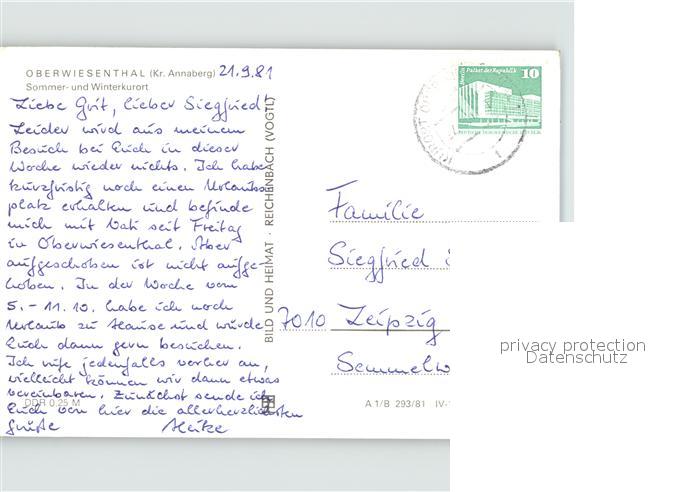 OBERWIESENTHAL (Kr. Annaberg) 21.9.81
Sommer- und Winterkurort
Liebe Grit, lieber Siegfried!
Leider wird aus meinem
Besuch bei Euch in dieser
Woche wieder nichts. Ich habe
kurzfristig noch einen Urlaubs
platz erhalten und befinde
mich mit Vati seit Freitag
in Oberwiesenthal. Aber
aufgeschoben ist nicht aufge-
hoben. In der Woche vom
5.-11.10. habe ich noch
Urlaub zu Hause und würde
Euch dann gern besuchen.
Ich rufe jedenfalls vorher an,
vielleicht können wir dann etwas
vereinbaren. Zunächst sende ich
Euch von hier die allerherzlichsten
Grüße Heike
DDR 0.25 M
BILD UND HEIMAT · REICHENBACH (VOGTL)
Berlin Palast der Republik 10
Familie
Siegfried
7010 Leipzig
Semmelw
A 1/B 293/81 IV-
privacy protection
Datenschutz